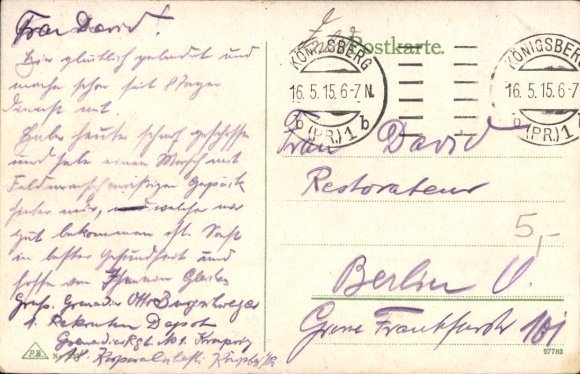 Frau David!
Bin glücklich gelandet und
mache schon seit 8 Tagen
Dienst mit.
Habe heute scharf geschossen
und habe einen Marsch mit
Feldmarschmäßigem Gepäck
hinter mir, welcher mir
gut bekommen ist. Sonst
in bester Gesundheit und
hoffe von Ihnen Gleiches
Gruß. Grenadier Otto
1. Rekruten Depot
Grenadier Rgt. No 1.
18. Korporalschaft Königsberg
Feld Postkarte.
KÖNIGSBERG
16.5.15.6-7N.
b (PR.) 1 b
KÖNIGSBERG
16.5.15.6-7
b (PR.) 1 b
Frau David
Restorateur
5,-
Berlin O.
Große Frankfurtstr 101
P.B.
No.
27782